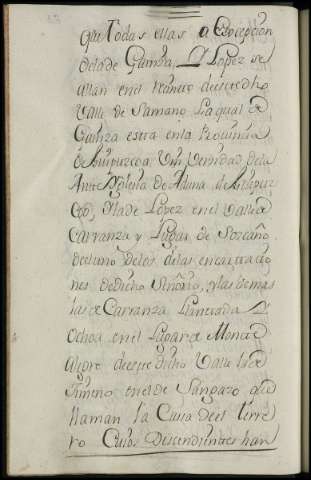 que todas ellas a Excepcion
dela de Guinza, Dn Lopez se
allan en el
Valle de Samano, La qual de
Guinza esta en la Provincia
de Guipuzcoa, Vni Vezindad dela
Ante Yglesia de Aduna de Guipuz
coa, Ylade Lopez en el Valle de
Carranza y Lugar de Soscaño,
de el uno de los de las encartacio
nes de dicho Señorio, y las demas
las de Carranza Llantada Dn
Ochoa en el Lugar de Monte
alegre de ese dicho Valle la de
Ximeno en el de Sangazo que
llaman la Casa de el Terre
ro Cuios Descendientes han